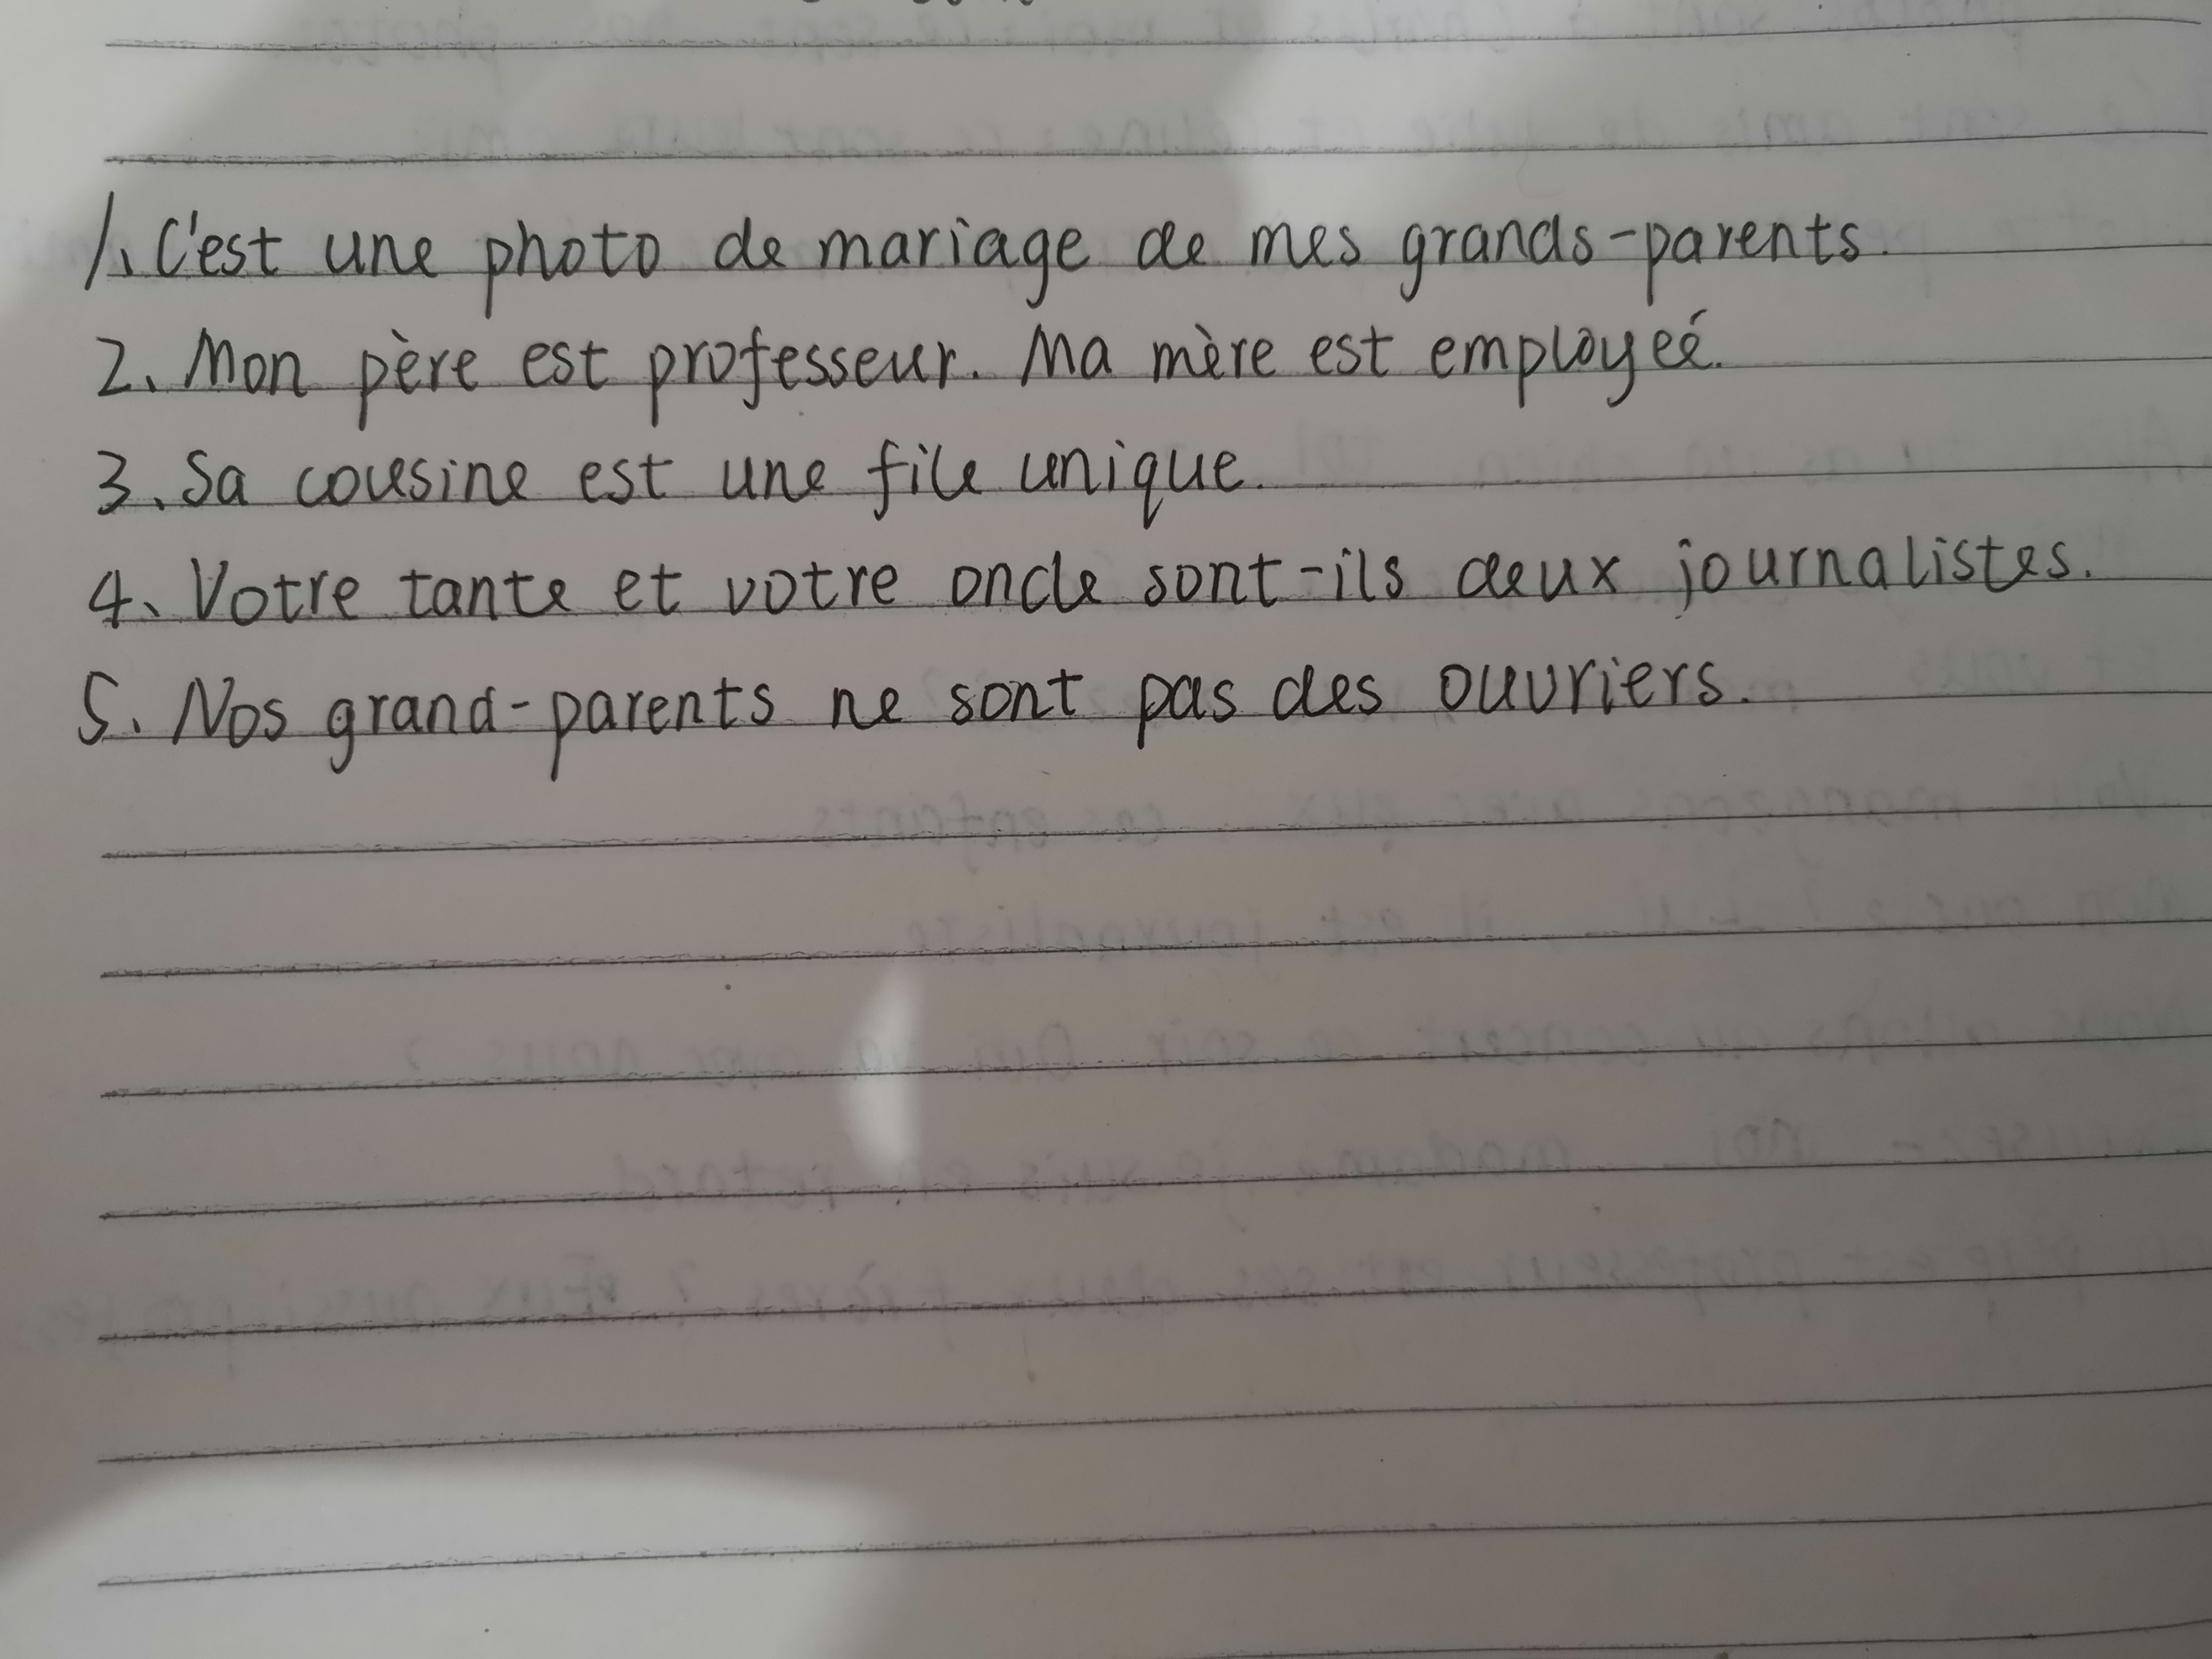 1. C'est une photo de mariage de mes grands-parents.
2. Mon père est professeur. Ma mère est employeé.
3. Sa cousine est une file unique.
4. Votre tante et votre oncle sont-ils deux journalistes.
5. Nos grand-parents ne sont pas des ouvriers.